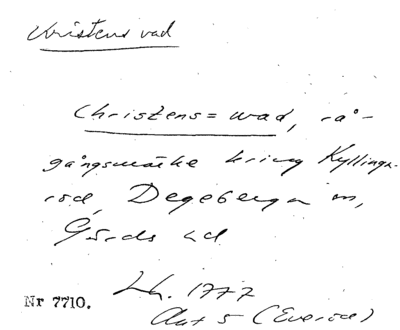 Kristens vad
Christens=wad, rå-
gångsmärke kring Kyllings-
röd, Degeberga sn,
Gärds hd
Lh. 1777
Nr 7710.
Akt 5 (Everöd)